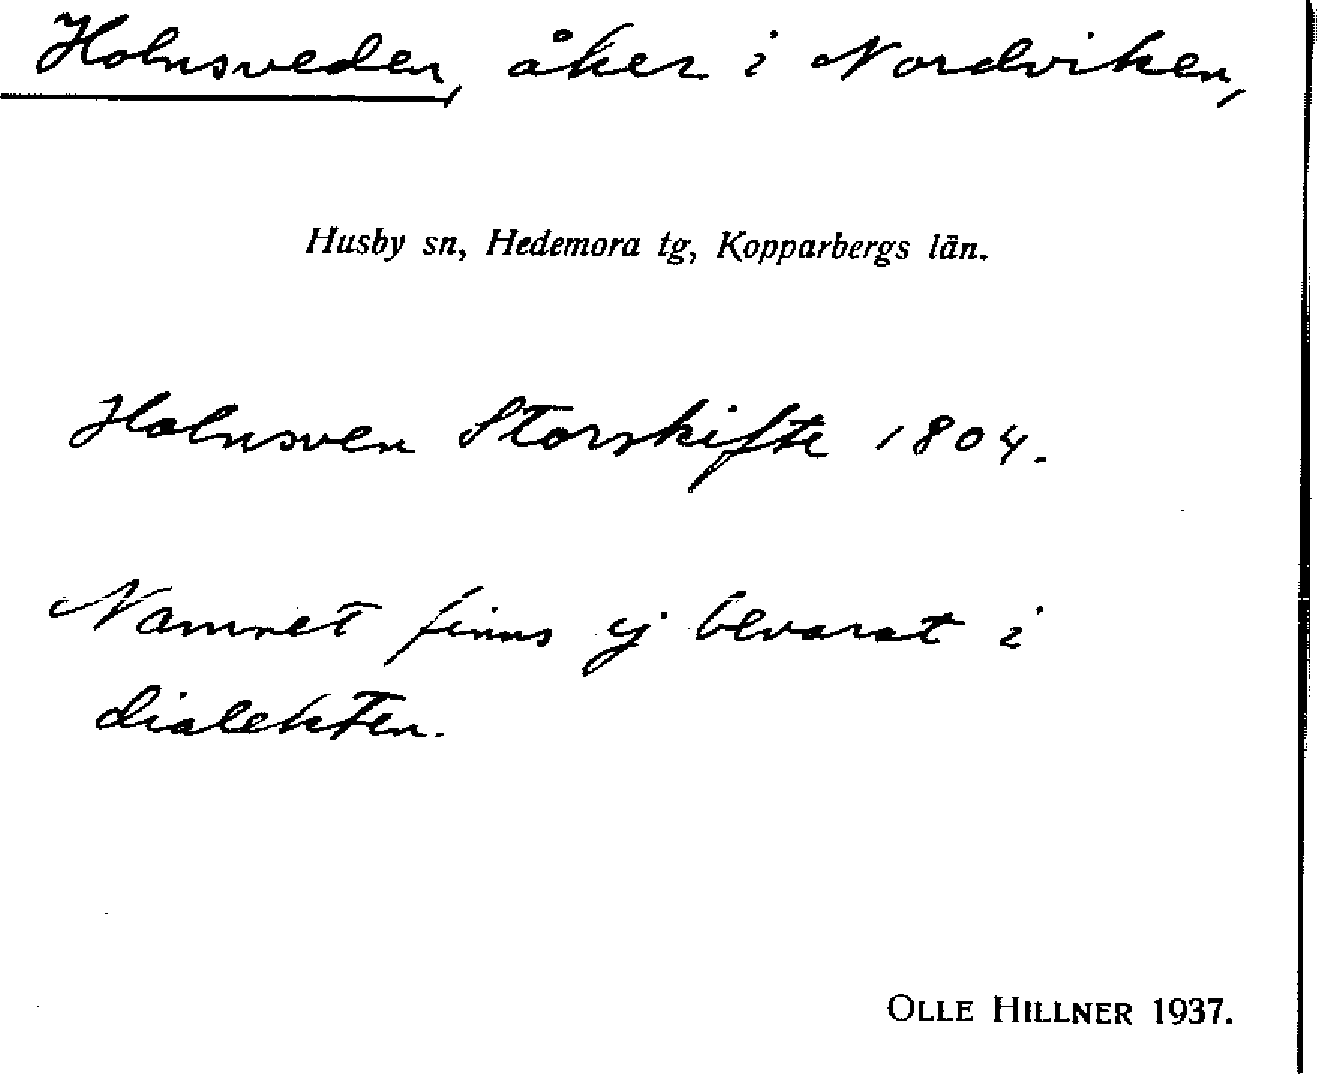 Holnsveden, åker i Nordviken,
Husby sn, Hedemora tg, Kopparbergs län.
Holnsven Storskifte 1804.
Namnet finns ej bevarat i
dialekten.
OLLE HILLNER 1937.